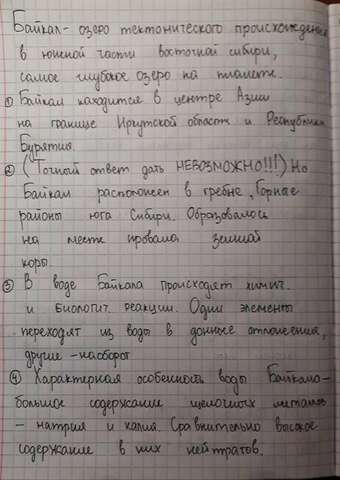 Байкал - озеро тектонического происхождения
в южной части восточной сибири,
самое глубокое озеро на планете.
① Байкал находится в центре Азии
на границе Иркутской области и Республики
Бурятия.
② (Точный ответ дать НЕВОЗМОЖНО!!!) Но
Байкал расположен в гребне, Горные
районы юга Сибири. Образовалось
на месте провала земной
коры.
③ В воде Байкала происходят химич.
и биологич. реакции. Одни элементы
переходят из воды в донные отложения,
другие - наоборот
④ Характерная особенность воды Байкала-
большое содержание щелочных металлов
- натрия и калия. Сравнительно высокое
содержание в них нейтратов.